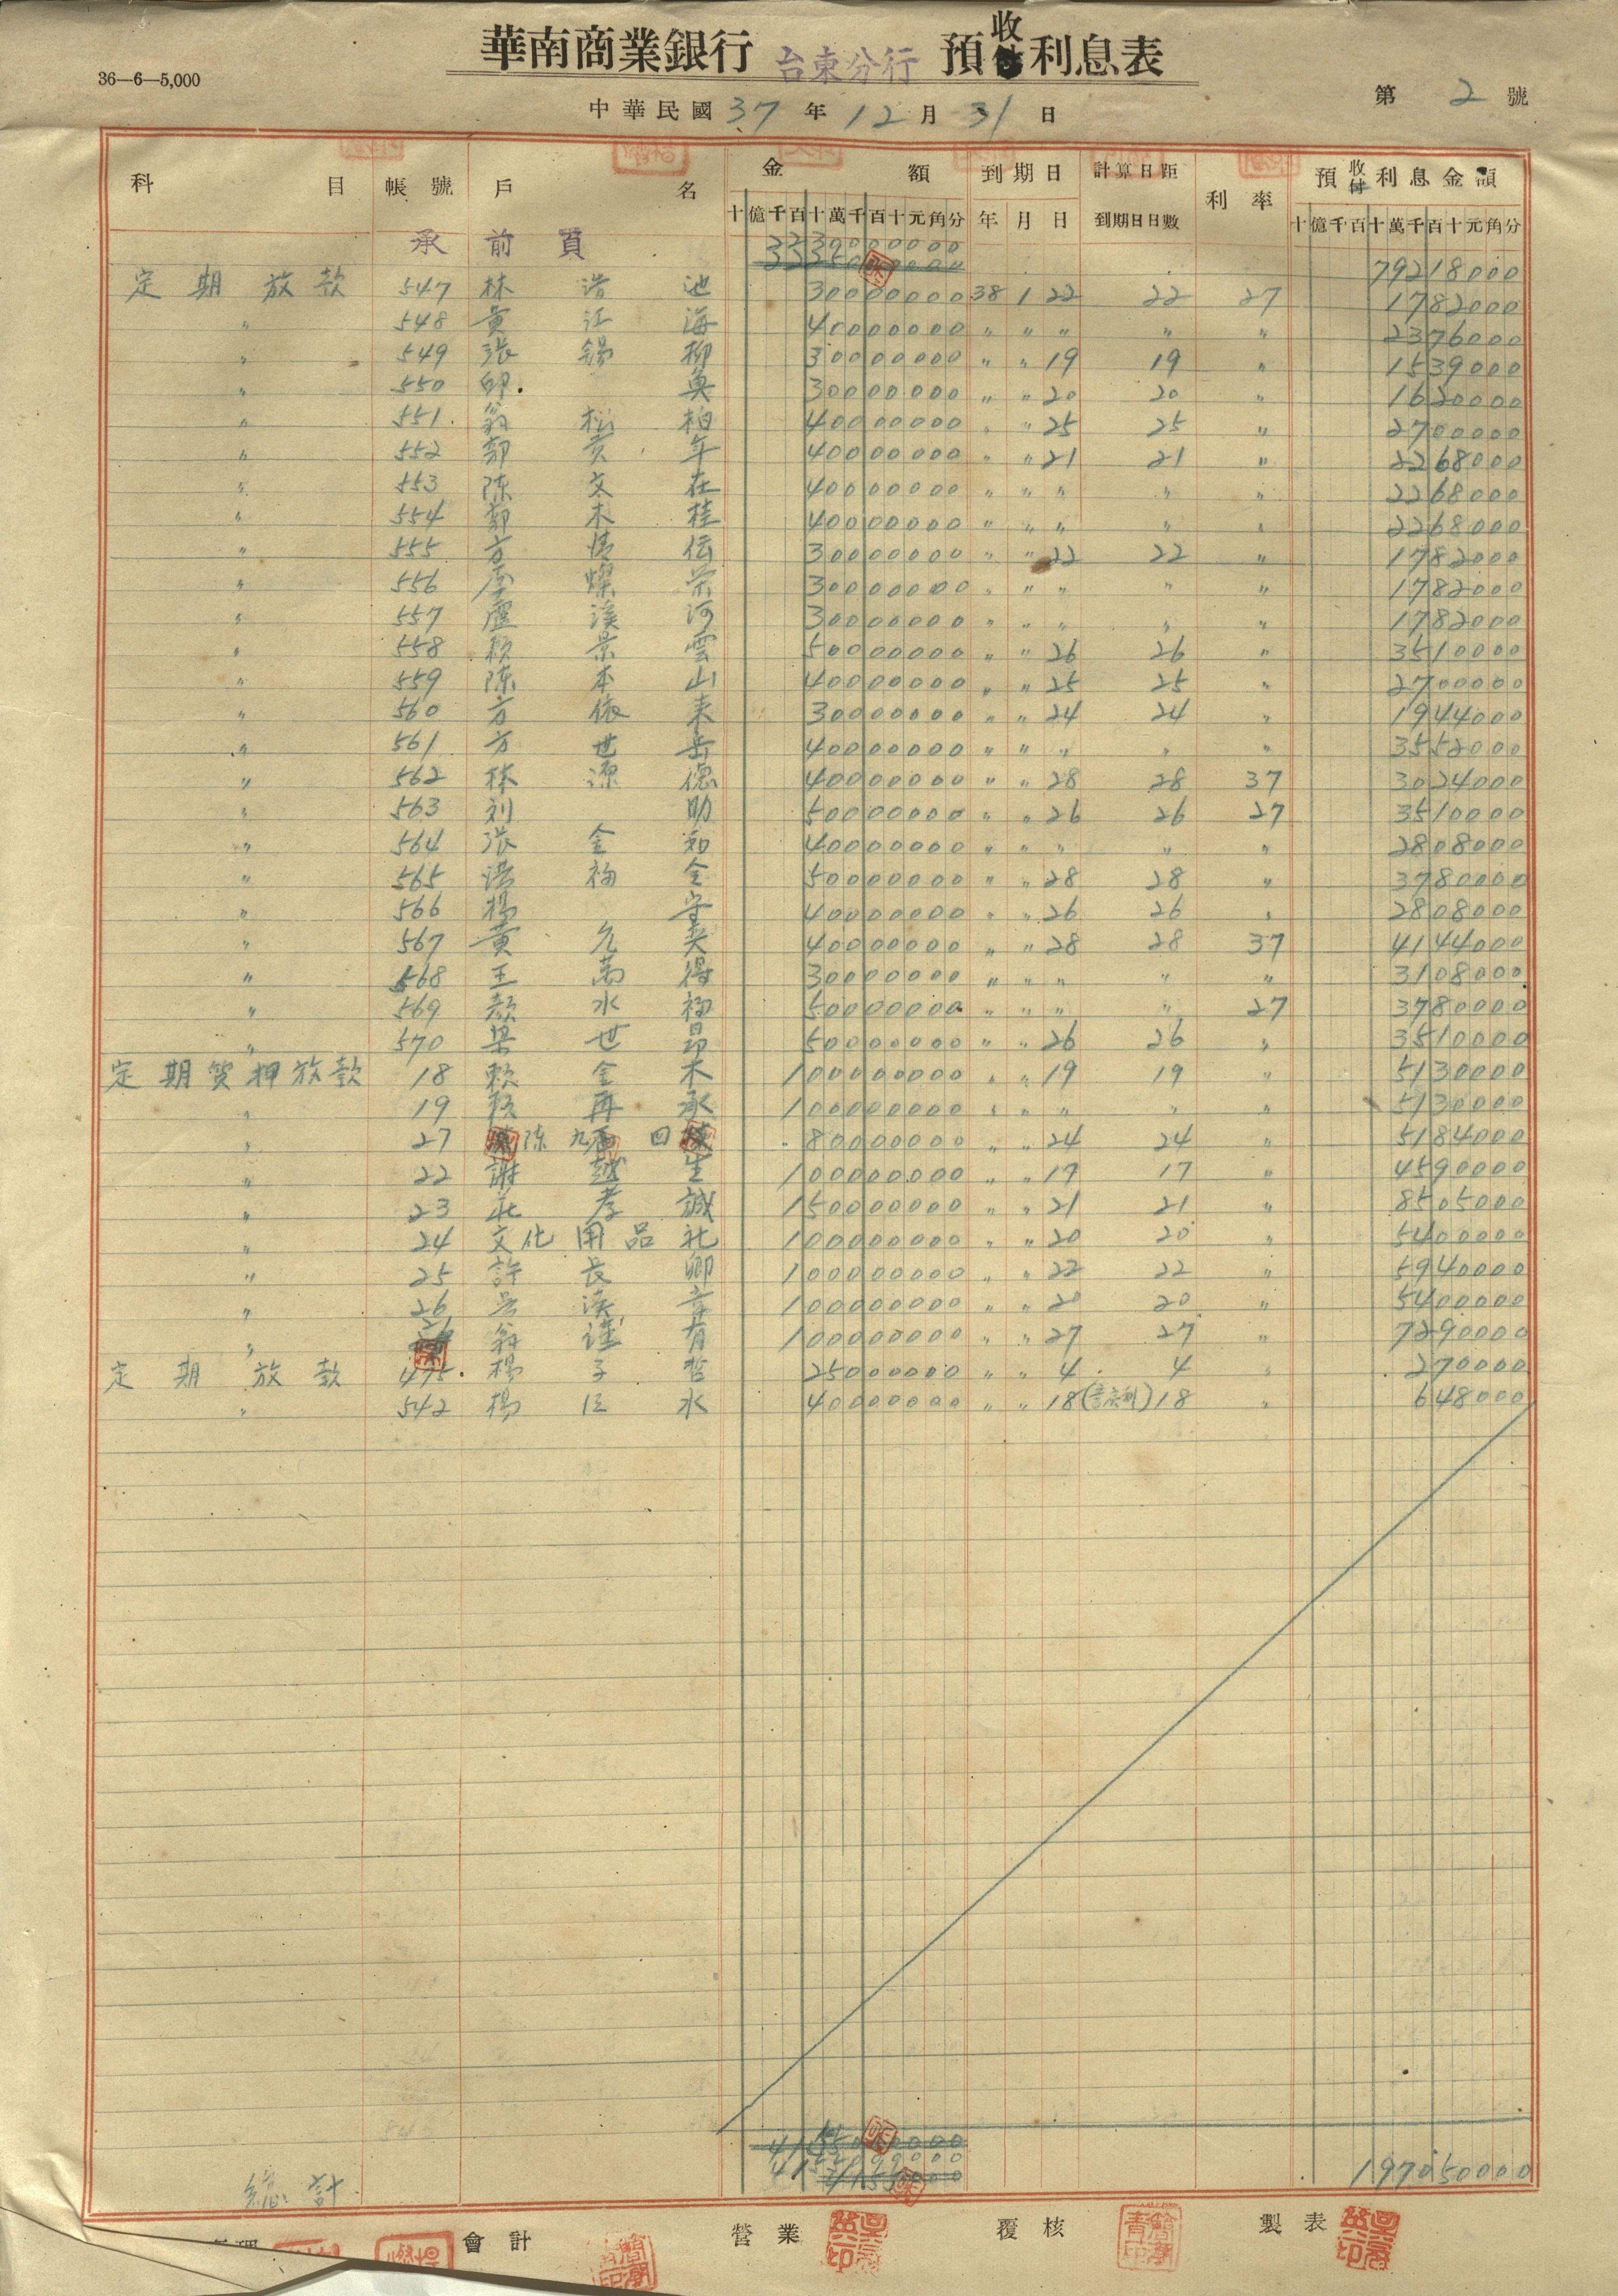 華南商業銀行 台東分行 預收利息表
36—6—5,000
中華民國 37 年 12 月 31 日
第 2 號
科目 帳號 戶名 金額 到期日 計算日距到期日日數 利率 預收付利息金額
十億千百十萬千百十元角分 年 月 日 十億千百十萬千百十元角分
承前頁 79218000
定期放款 547 林 池 30000000 38 1 22 22 27 1782000
〃 548 黃江海 40000000 〃 〃 〃 〃 〃 2376000
〃 549 張錫柳 30000000 〃 〃 19 19 〃 1539000
〃 550 30000000 〃 〃 20 20 〃 1620000
〃 551 翁松柏 40000000 〃 〃 25 25 〃 2700000
〃 552 郭亥年 40000000 〃 〃 21 21 〃 2268000
〃 553 陳文在 40000000 〃 〃 〃 〃 〃 2268000
〃 554 鄭木桂 40000000 〃 〃 〃 〃 〃 2268000
〃 555 方 伝 30000000 〃 〃 22 22 〃 1782000
〃 556 燦 30000000 〃 〃 〃 〃 〃 1782000
〃 557 盧溪河 30000000 〃 〃 〃 〃 〃 1782000
〃 558 賴景雲 50000000 〃 〃 26 26 〃 3510000
〃 559 陳本山 40000000 〃 〃 25 25 〃 2700000
〃 560 方依來 30000000 〃 〃 24 24 〃 1944000
〃 561 方世岳 40000000 〃 〃 〃 〃 〃 3552000
〃 562 林源德 40000000 〃 〃 28 28 37 3024000
〃 563 刘助 50000000 〃 〃 26 26 27 3510000
〃 564 張金 40000000 〃 〃 〃 〃 〃 2808000
〃 565 福全 50000000 〃 〃 28 28 〃 3780000
〃 566 楊守 40000000 〃 〃 26 26 〃 2808000
〃 567 黃允 40000000 〃 〃 28 28 37 4144000
〃 568 王萬得 30000000 〃 〃 〃 〃 〃 3108000
〃 569 顏水福 50000000 〃 〃 〃 〃 27 3780000
〃 570 梁世昂 50000000 〃 〃 26 26 〃 3510000
定期質押放款 18 賴金木 100000000 〃 〃 19 19 〃 5130000
〃 19 賴再承 100000000 〃 〃 〃 〃 〃 5130000
〃 27 陳九 回 80000000 〃 〃 24 24 〃 5184000
〃 22 謝越生 100000000 〃 〃 17 17 〃 4590000
〃 23 孝誠 150000000 〃 〃 21 21 〃 8505000
〃 24 文化用品社 100000000 〃 〃 20 20 〃 5400000
〃 25 許長卿 100000000 〃 〃 22 22 〃 5940000
〃 26 吳漢章 100000000 〃 〃 20 20 〃 5400000
〃 翁謹有 100000000 〃 〃 27 27 〃 7290000
定期放款 475 楊子哲 25000000 〃 〃 4 4 〃 270000
〃 542 楊 水 40000000 〃 〃 18 18 〃 648000
總計 197050000
會計 營業 覆核 製表